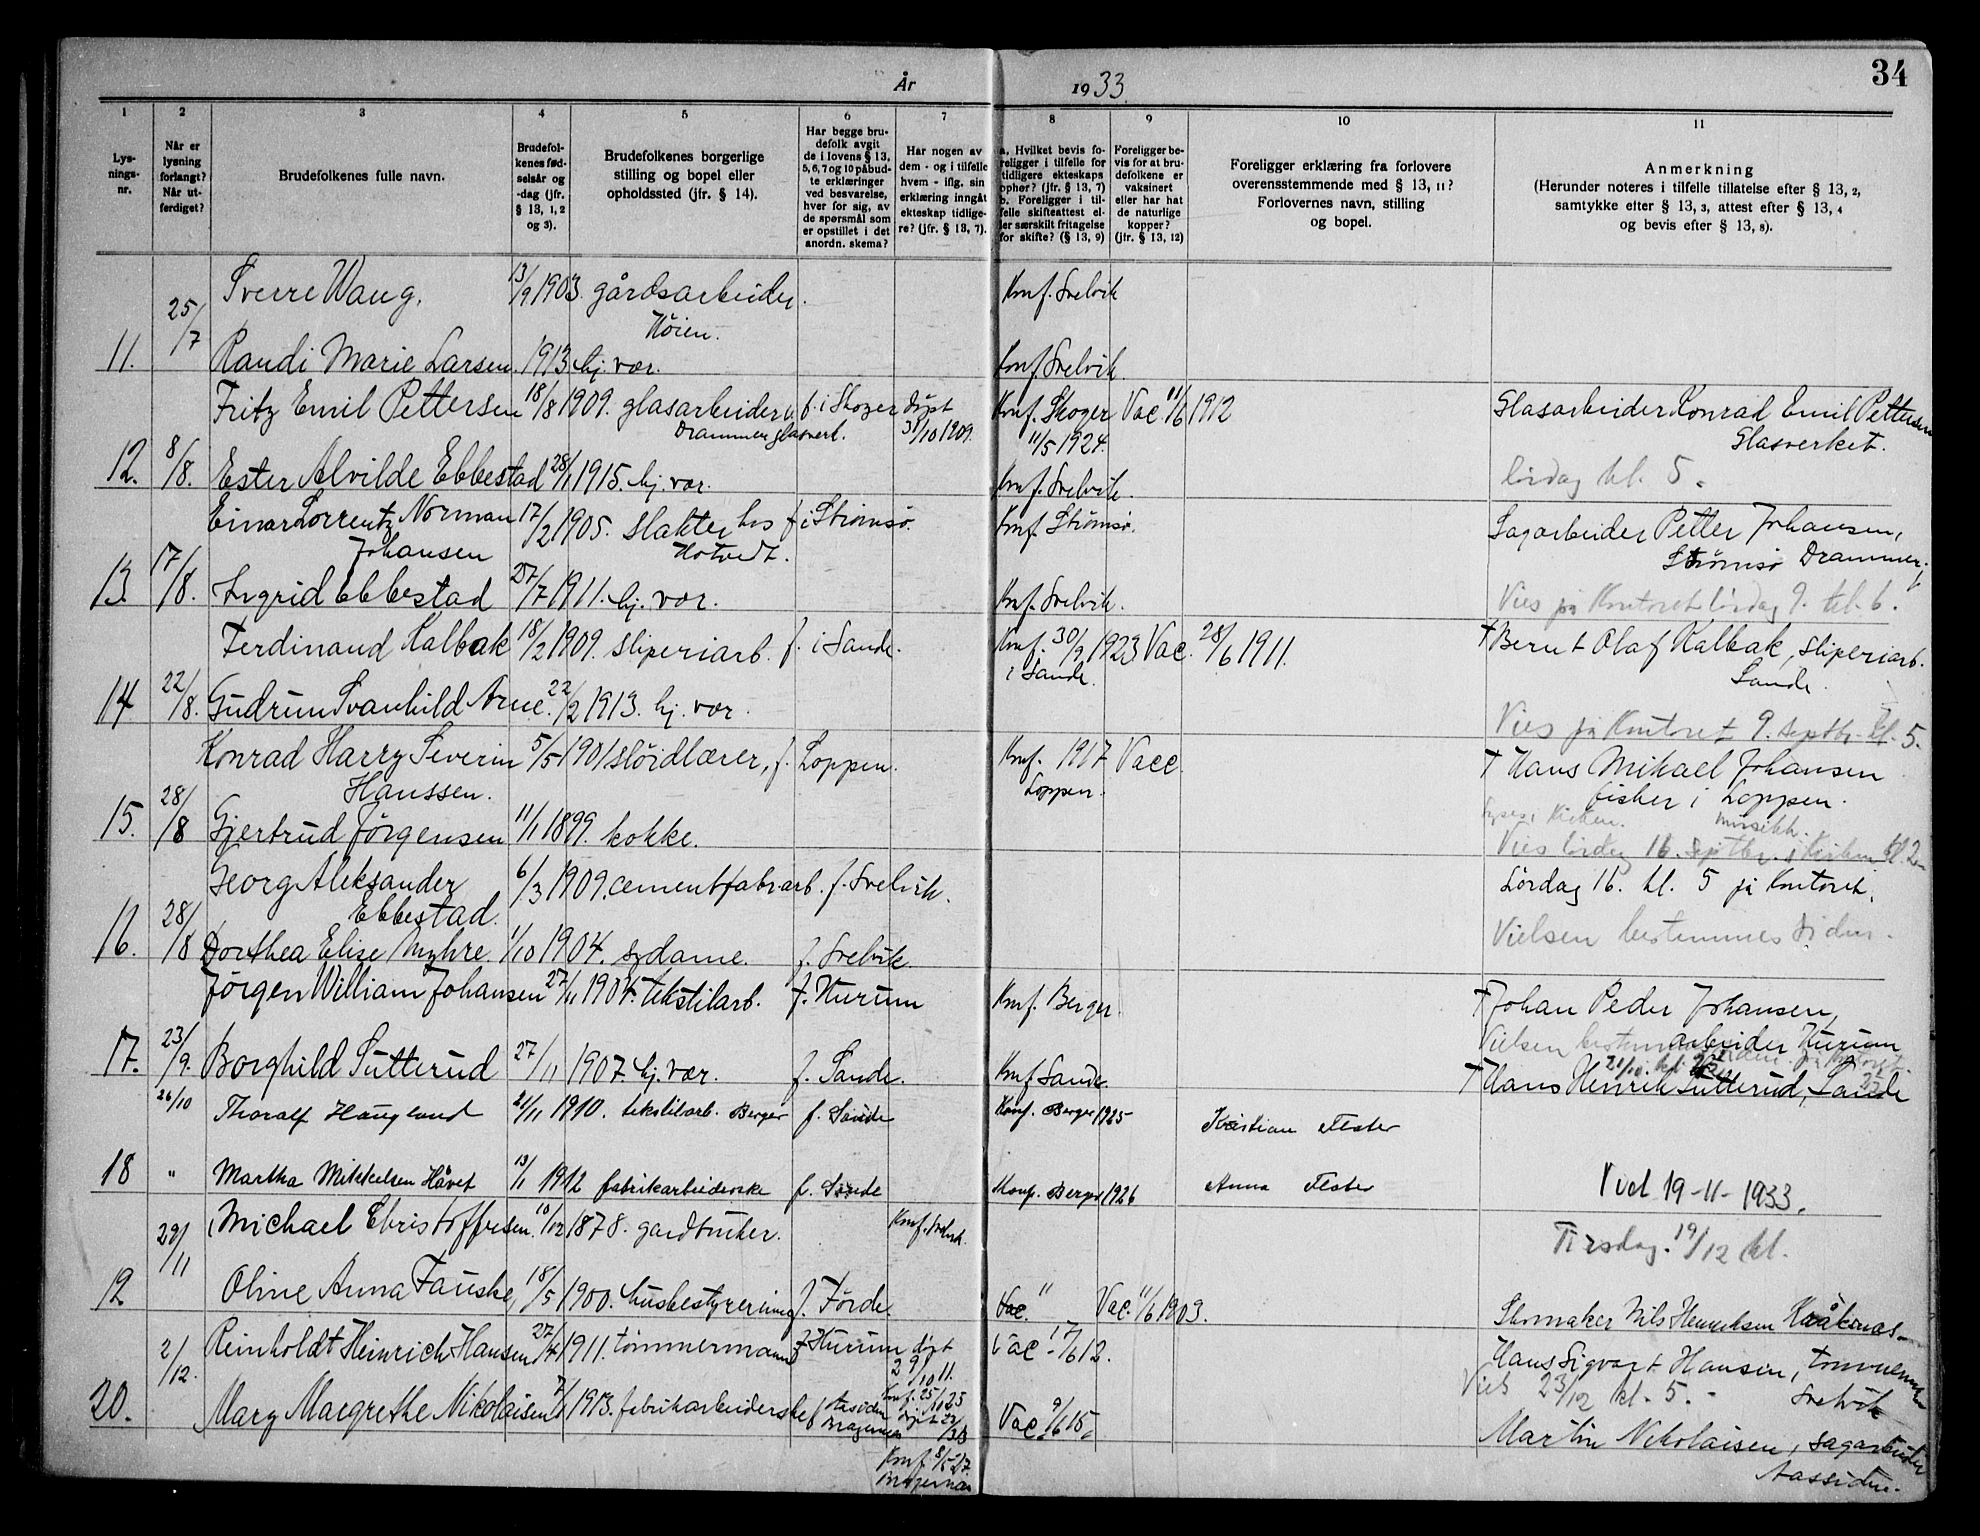 34
År 1933
1 2 3 4 5 6 7 8 9 10 11
Lys-
nings-
nr.
Når er
lysning
forlangt?
Når ut-
ferdiget?
Brudefolkenes fulle navn.
Brudefol-
kenes fød-
selsår og
-dag (jfr.
§ 13, 1, 2
og 3).
Brudefolkenes borgerlige
stilling og bopel eller
opholdssted (jfr. § 14).
Har begge bru-
defolk avgit
de i lovens § 13,
5, 6, 7 og 10 påbud-
te erklæringer
ved besvarelse,
hver for sig, av
de spørsmål som
er opstillet i det
anordn. skema?
Har nogen av
dem - og i tilfelle
hvem - iflg. sin
erklæring inngåt
ekteskap tidlige-
re? (jfr. § 13, 7).
a. Hvilket bevis fo-
religger i tilfelle for
tidligere ekteskaps
ophør? (jfr. § 13, 7)
b. Foreligger i til-
felle skifteattest el-
ler særskilt fritagelse
for skifte? (§ 13, 9)
Foreligger be-
vis for at bru-
defolkene er
vaksinert
eller har hat
de naturlige
kopper?
(jfr. § 13, 12)
Foreligger erklæring fra forlovere
overensstemmende med § 13, 11?
Forlovernes navn, stilling
og bopel.
Anmerkning
(Herunder noteres i tilfelle tillatelse efter § 13, 2,
samtykke efter § 13, 3, attest efter § 13, 4
og bevis efter § 13, 8).
Sverre Waug. 13/9 1903. gårdsarbeider. Konf. Svelvik
25/7 Höien.
11. Randi Marie Larsen. 1913 hj. vær. Konf. Svelvik
Fritz Emil Pettersen 18/8 1909. glasarbeider f. i Skoger döpt Konf. Skoger Vac. 11/6 1912 Glasarbeider Konrad Emil Pettersen
Drammen glasverk. 31/10 1909. 11/5 1924. Glasverket.
12. 8/8. Ester Alvilde Ebbestad 28/1 1915. hj. vær. Konf. Svelvik. lördag kl. 5.
Einar Lorrentz Norman 17/2 1905. slakter hos f. i Strömsö. Konf. Strömsö. Sagarbeider Petter Johansen,
Johansen Hotvedt. Strömsö Drammen.
13. 17/8. Ingrid Ebbestad 27/7 1911. hj. vær. Konf. Svelvik. Vies på Kontoret lördag 9. kl. 6.
Ferdinand Kalbak 18/2 1909. sliperiarb. f. i Sande. Konf. 30/9 1923 Vac. 28/6 1911. † Bernt Olaf Kalbak, sliperiarb.
i Sande. Sande.
14 22/8. Gudrun Svanhild Arne. 22/2 1913. hj. vær. Vies på Kontoret 9. septbr. kl. 5.
Konrad Harry Severin 5/5 1901 slöidlærer, f. Loppen. Konf. 1917 Vacc. † Hans Mikael Johansen
Hanssen. Loppen. fisker i Loppen.
15. 28/8 Gjertrud Jörgensen 11/1 1899. kokke. Vies lördag 16. Septbr. i Kirken kl. 2
Georg Aleksander 6/3 1909. cementfabr.arb. f. Svelvik. Lördag 16. kl. 5 på Kontoret.
Ebbestad.
16. 28/8 Dorthea Elise Myhre. 1/10 1904. sydame. f. Svelvik. Vielsen bestemmes siden.
Jörgen William Johansen 27/11 1904. tekstilarb. f. Hurum Konf. Berger. † Johan Peder Johansen,
arbeider Hurum
17. 23/9. Borghild Sutterud 27/11 1907. hj. vær. f. Sande. Konf. Sande. † Hans Henrik Sutterud, Sande
26/10 Thoralf Haugland 21/11 1910. tekstilarb. Berger f. Sande Konf. Berger 1925 Kristian Flester
18 " Martha Mikkelsen Håvet 13/1 1912 fabrikarbeiderske f. Sande Konf. Berger 1926 Anna Flester Viet 19-11-1933.
Michael Christoffersen. 10/12 1878. gardbruker. Konf. Svelvik. Tirsdag. 19/12 kl.
29/11
19 Oline Anna Fauske, 18/5 1900. husbestyrerinne f. Förde. Vac. " Vac. 11/6 1903. Skomaker Nils Henriksen Kråkenes
Reinholdt Heinrich Hansen 27/4 1911. tömmermann f. Hurum döpt Vac. 17/6 12. Hans Sigvart Hansen, tömmermann
2/12. 29/10 11. Svelvik
Konf. 25/1 25 Viet 23/12 kl. 5.
20. Mary Margrethe Nikolaisen 7/1 1913. fabrikarbeiderske f. Aasiden döpt 23/3 13 Vac. 9/6 15. Martin Nikolaisen, sagarbeider
Bragernes Aassiden.
Konf. 8/5 27.
Bragernes